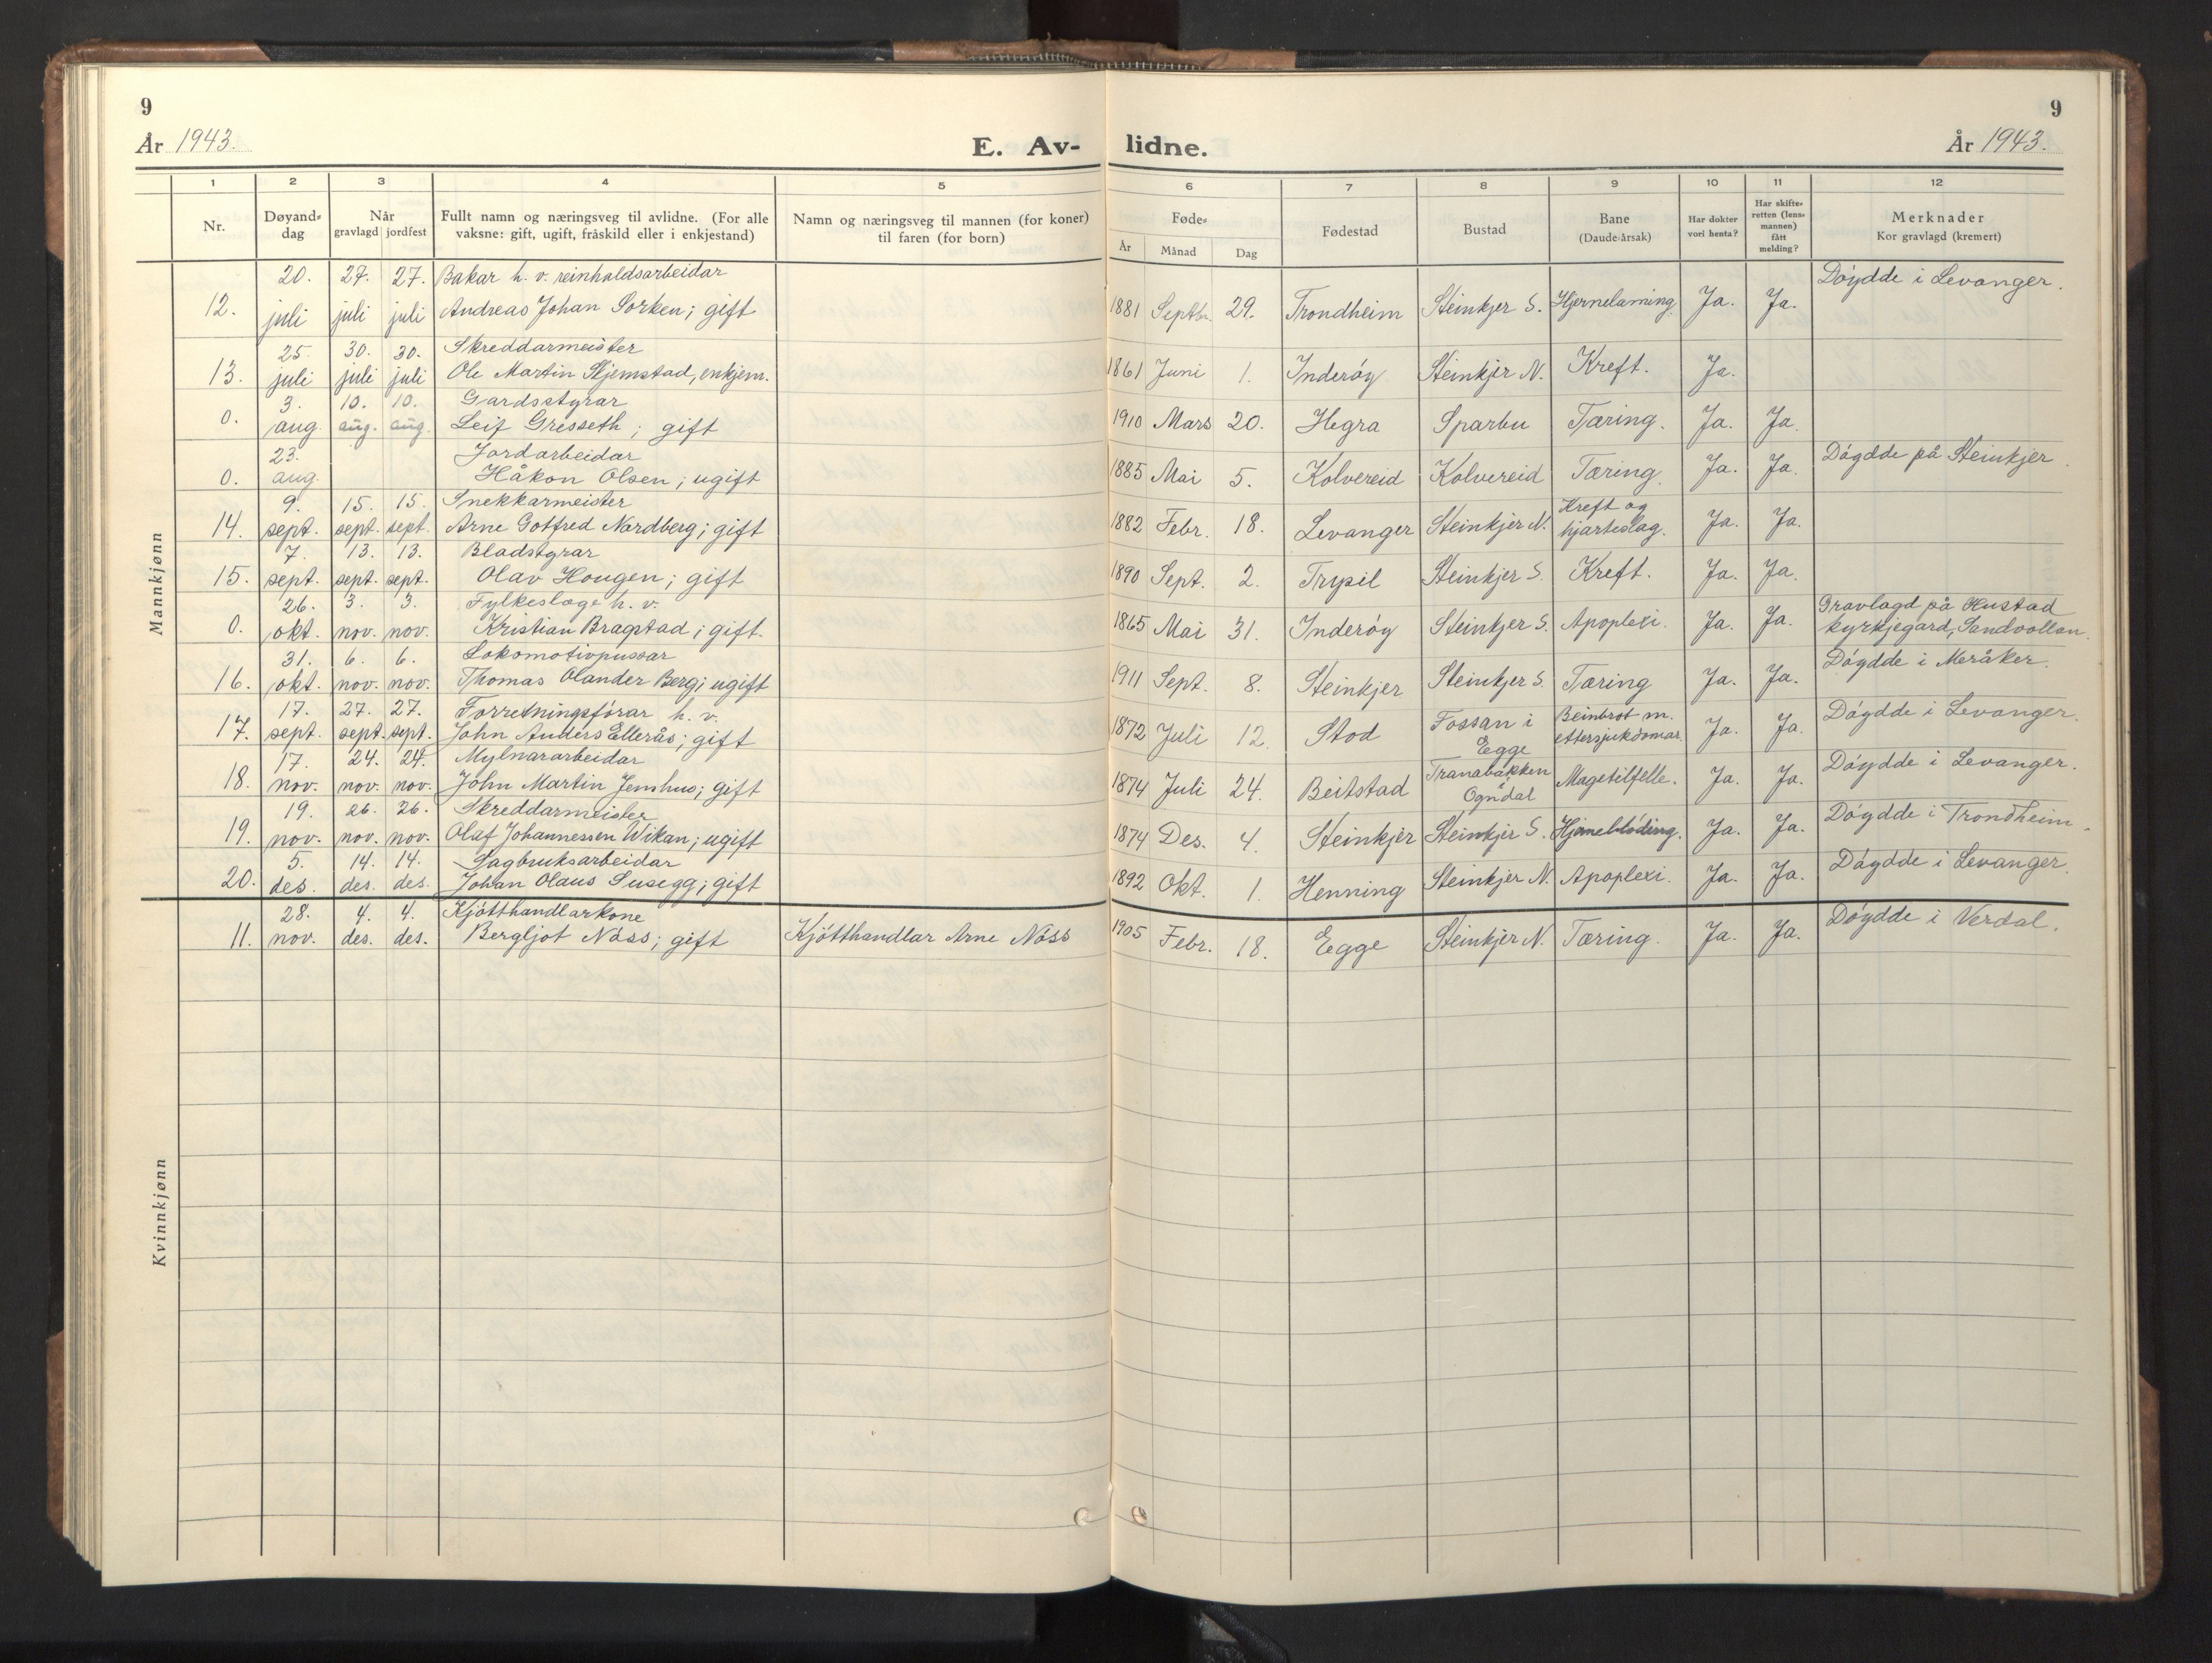 9
År 1943.
E. Av-
1 2 3 4 5
Nr.
Døyand-
dag
Når
gravlagd jordfest
Fullt namn og næringsveg til avlidne. (For alle
vaksne: gift, ugift, fråskild eller i enkjestand)
Namn og næringsveg til mannen (for koner)
til faren (for born)
Mannkjønn
20. 27. 27. Bakar h. v. reinhaldsarbeidar
12. juli juli juli Andreas Johan Sorken; gift
25. 30. 30. Skreddarmeister
13. juli juli juli Ole Martin Skjemstad, enkjem.
3. 10. 10. Gardsstyrar
0. aug aug. aug. Leif Gresseth; gift
23. Jordarbeidar
0. aug. Håkon Olsen; ugift
9. 15. 15. Snekkarmeister
14. sept. sept. sept. Arne Gotfred Nordberg; gift
7. 13. 13. Bladstyrar
15. sept. sept. sept. Olav Hougen; gift
26. 3. 3. Fylkeslæge h. v.
0. okt. nov. nov. Kristian Bragstad; gift.
31. 6. 6. Lokomotivpussar
16. okt. nov. nov. Thomas Olander Berg; ugift
17. 27. 27. Forretningsförar h. v.
17. sept. sept. sept. John Anders Ellerås; gift
17. 24. 24. Mylnararbeidar
18. nov. nov. nov. John Martin Jemhus; gift
19. 26. 26. Skreddarmeister
19. nov. nov. nov. Olaf Johannessen Wikan; ugift
5. 14. 14. Sagbruksarbeidar
20. des. des. des. Johan Olaus Susegg; gift
Kvinnkjønn
28. 4. 4. Kjötthandlarkone
11. nov. des. des. Bergljot Näss; gift Kjötthandlar Arne Näss
9
lidne.
År 1943.
6 7 8 9 10 11 12
Føde-
År Månad Dag
Fødestad
Bustad
Bane
(Daude-årsak)
Har dokter
vori henta?
Har skifte-
retten (lens-
mannen)
fått
melding?
Merknader
Kor gravlagd (kremert)
Döydde i Levanger.
1881 Septbr. 29. Trondheim Steinkjer S. Hjernelaming Ja. Ja.
1861 Juni 1. Inderöy Steinkjer N. Kreft. Ja.
1910 Mars 20. Hegra Sparbu Tæring. Ja. Ja.
1885 Mai 5. Kolvereid Kolvereid Tæring. Ja. Ja. Döydde på Steinkjer.
Kreft og
1882 Febr. 18. Levanger Steinkjer N. hjarteslag. Ja. Ja.
1890 Sept. 2. Trysil Steinkjer S. Kreft. Ja. Ja.
Gravlagd på Hustad
1865 Mai 31. Inderöy Steinkjer S. Apoplexi. Ja. Ja. kyrkjegard, Sandvollan.
Döydde i Meråker.
1911 Sept. 8. Steinkjer Steinkjer S. Tæring Ja. Ja.
Fossan i Beinbrot m. Döydde i Levanger.
1872 Juli 12. Stod Egge ettersjukdomar. Ja. Ja.
Tranabakken Döydde i Levanger.
1874 Juli 24. Beitstad Ogndal Magetilfelle. Ja. Ja.
1874 Des. 4. Steinkjer Steinkjer S. Hjerneblöding. Ja. Ja. Döydde i Trondheim.
1892 Okt. 1. Henning Steinkjer N. Apoplexi. Ja. Ja. Döydde i Levanger.
1905 Febr. 18. Egge Steinkjer N. Tæring. Ja. Ja. Döydde i Verdal.